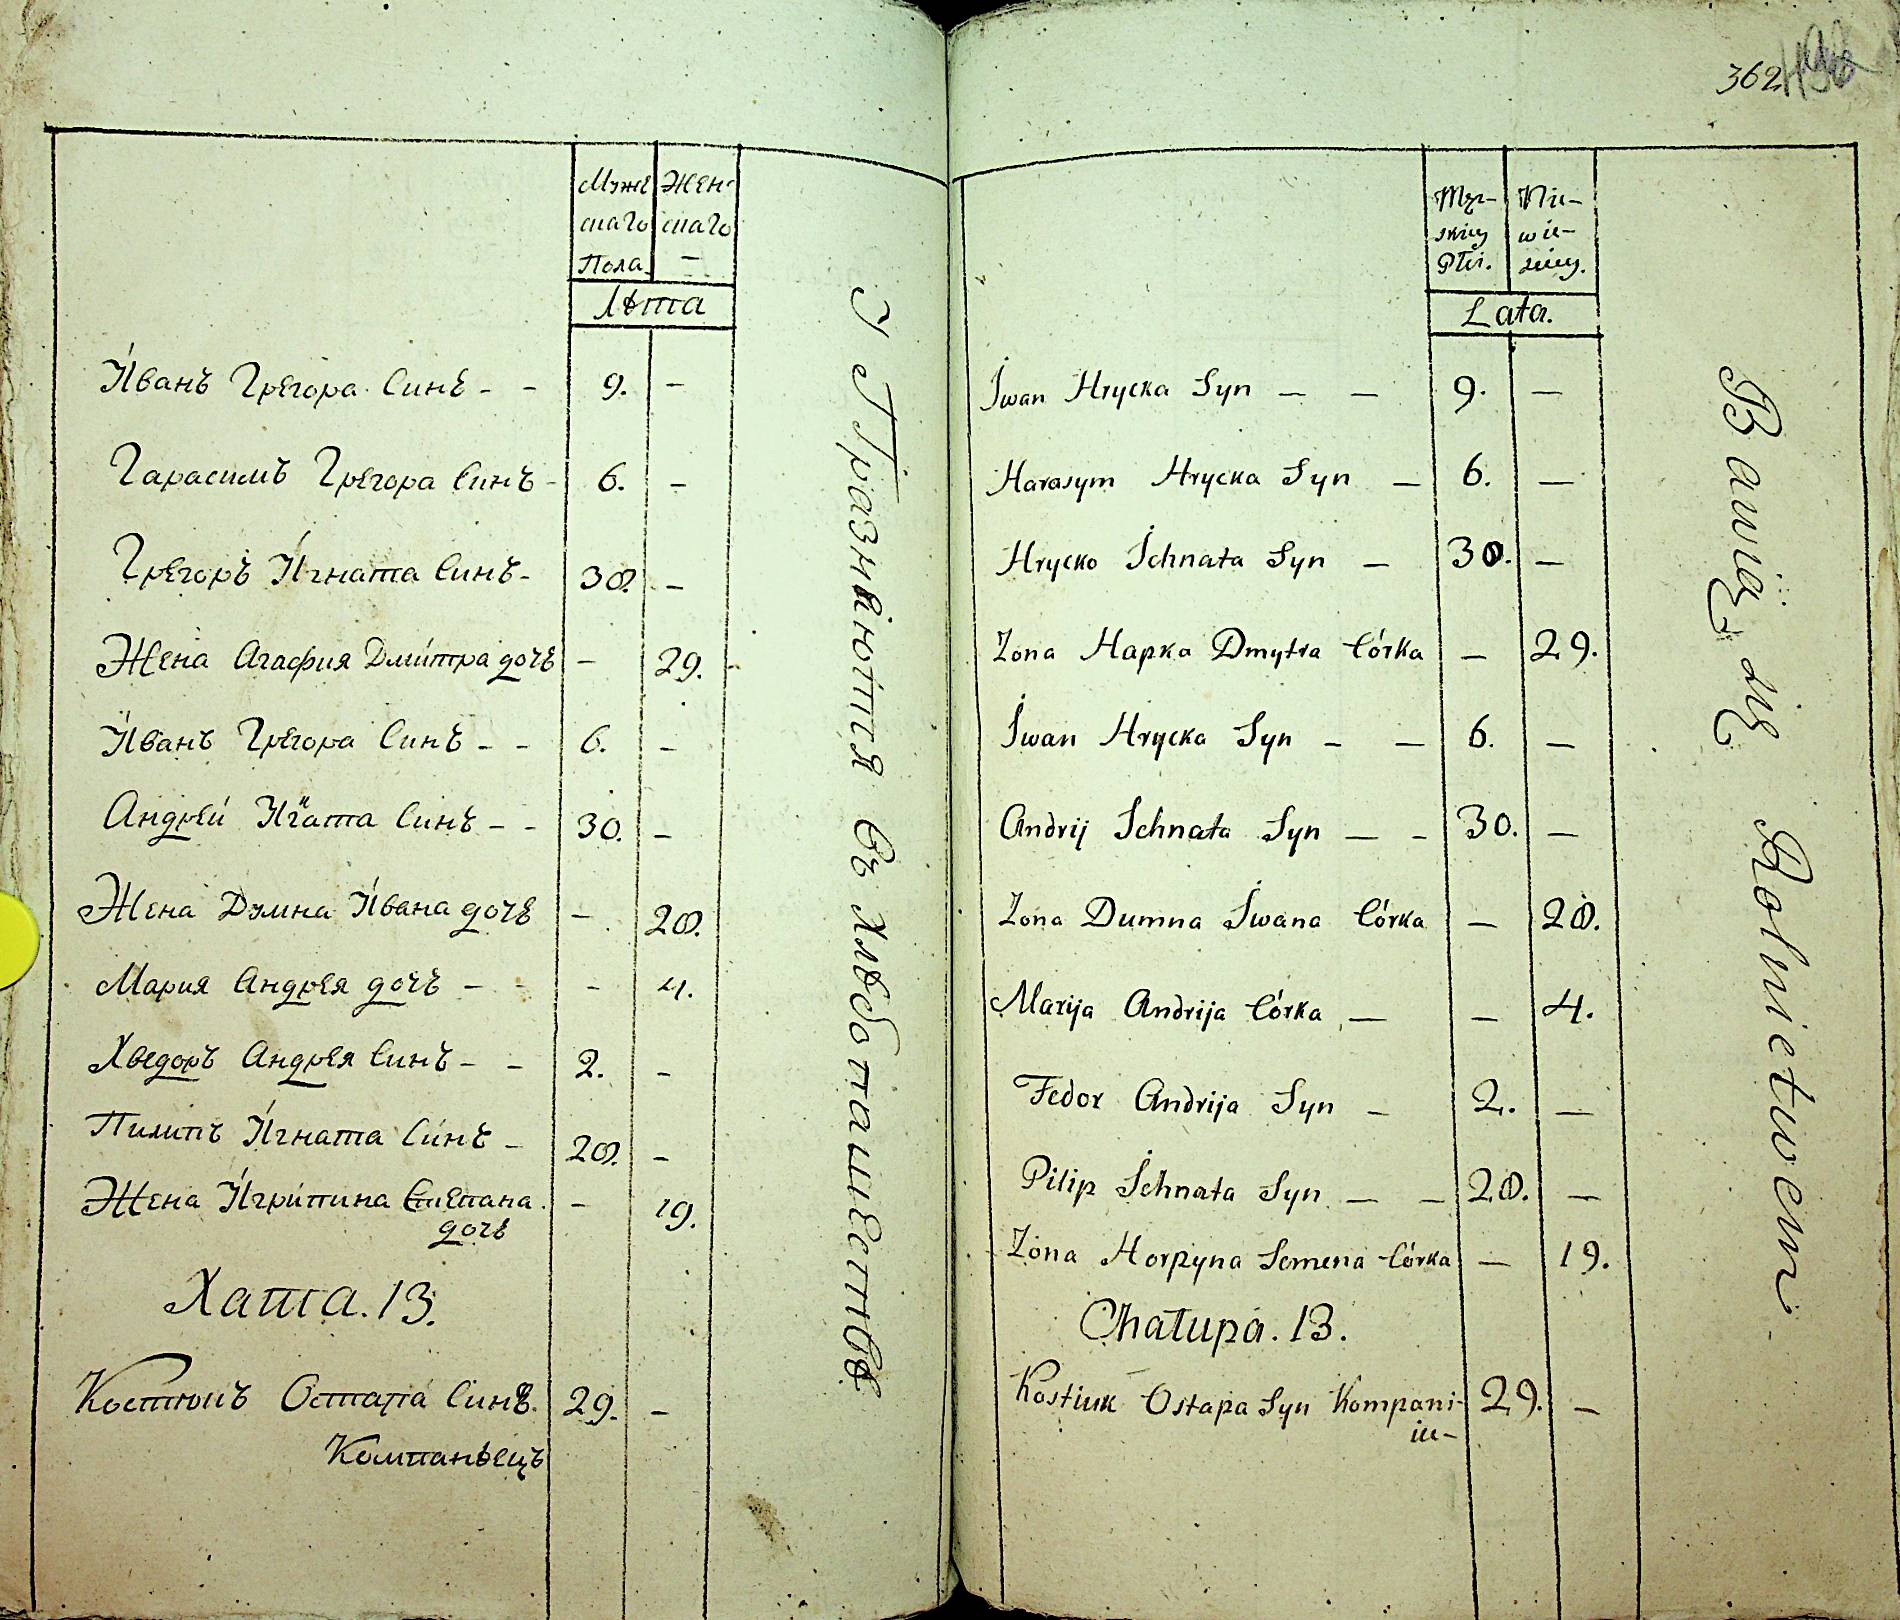 Муже
Жен-
скаго
скаго
Пола
–
Лѣта
Иванъ Грегора Синъ - - 9. -
Гарасимъ Грегора Синъ - 6. -
Грегоръ Игната Синъ - 30. -
Жена Агафия Дмитра дочъ - 29.
Иванъ Грегора Синъ - - 6. -
Андрей Игната Синъ - - 30. -
Жена Думна Ивана дочъ - 28.
Мария Андрея дочъ - - - 4.
Хведоръ Андрея Синъ - - 2. -
Пилипъ Игната Синъ - 28. -
Жена Игрипина Степана - 19.
дочъ
Хата. 13.
Костюкъ Остапа Синъ. 29. -
Компанѣецъ
У Празнѣ­ются въ хлѣбопашествѣ
362
Męz-
Nie-
skiey
wie-
Płci.
sciey.
Lata.
Iwan Hrycka Syn — — 9. —
Harasym Hrycka Syn — 6. —
Hrycko Ichnata Syn — 30. —
Zona Hapka Dmytra Córka — 29.
Iwan Hrycka Syn - — 6. —
Andrij Ichnata Syn — - 30. —
Zona Dumna Iwana Córka — 28.
Marija Andrija Córka — — 4.
Fedor Andrija Syn - 2. —
Pilip Ichnata Syn — - 28. —
Zona Horpyna Semena Córka — 19.
Chałupa. 13.
Kostiuk Ostapa Syn Kompani- 29. —
ie-
Bawią się Rolnictwem